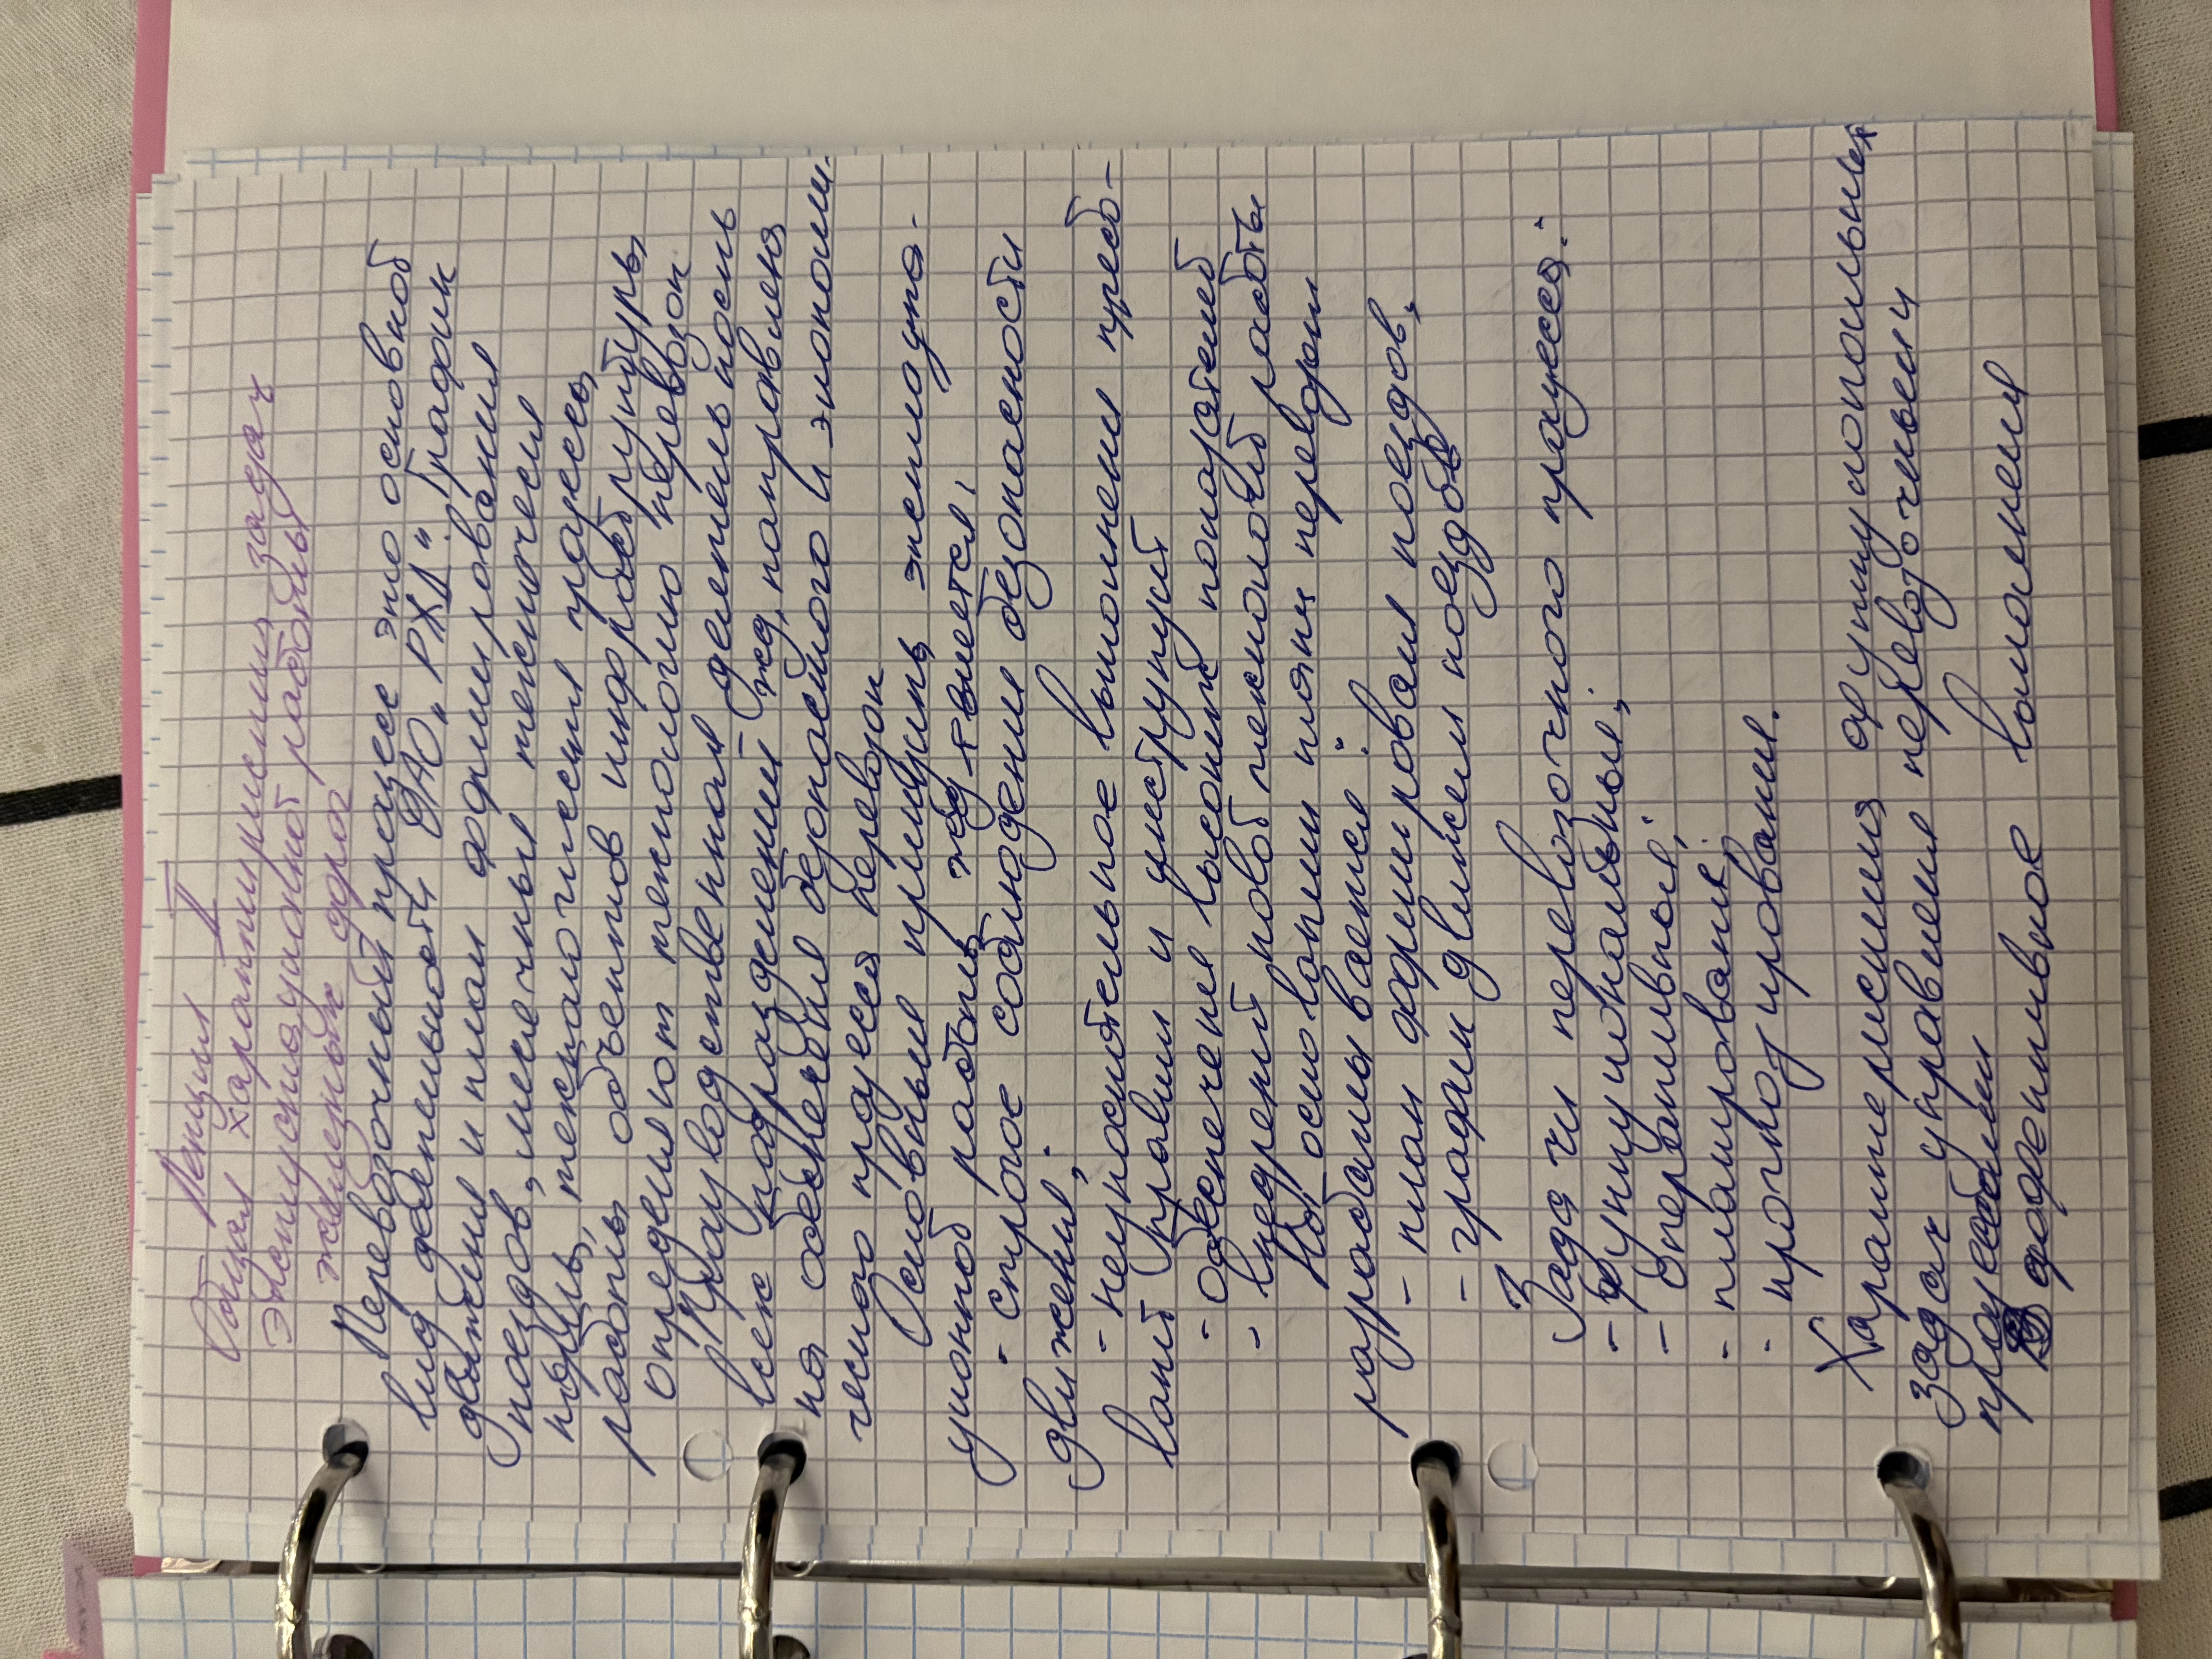 Лекция II
Общая характеристика задач
эксплуатационной работы
железных дорог
Перевозочный процесс это основной
вид деятельности ОАО "РЖД". График
движения и план формирования
поездов, месячный технически
работы объектов инфраструктуры,
определяют технологию перевозок
Производственная деятельность
всех подразделений жд, направлена
на обеспечение безопасного и экономи-
чесного процесса перевозок
Основные принципы эксплуата-
ционной работы жд является:
- строгое соблюдение безопасности
движения;
- неукоснительное выполнение треб-
ваний правил и инструкций
- обеспечение высоких показателей
- внедрений новой технологий работы
На основании плана перевозки
разрабатывается:
- план формирования поездов,
- график движения поездов
Задачи перевозочного процесса:
- функциональные;
- оперативные;
- планирования;
- прогнозирования.
Характеристика функциональных
задач управления перевозочным
процессами
эффективное выполнения